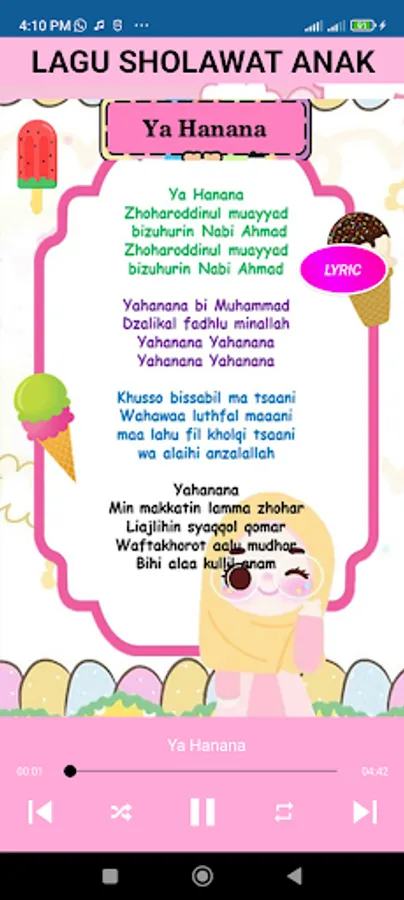 4:10 PM
91
LAGU SHOLAWAT ANAK
Ya Hanana
Ya Hanana
Zhoharoddinul muayyad
bizuhurin Nabi Ahmad
Zhoharoddinul muayyad
bizuhurin Nabi Ahmad
LYRIC
Yahanana bi Muhammad
Dzalikal fadhlu minallah
Yahanana Yahanana
Yahanana Yahanana
Khusso bissabil ma tsaani
Wahawaa luthfal maaani
maa lahu fil kholqi tsaani
wa alaihi anzalallah
Yahanana
Min makkatin lamma zhohar
Liajlihin syaqqol qomar
Waftakhorot aalu mudhor
Bihi alaa kullil anam
Ya Hanana
00:01
04:42